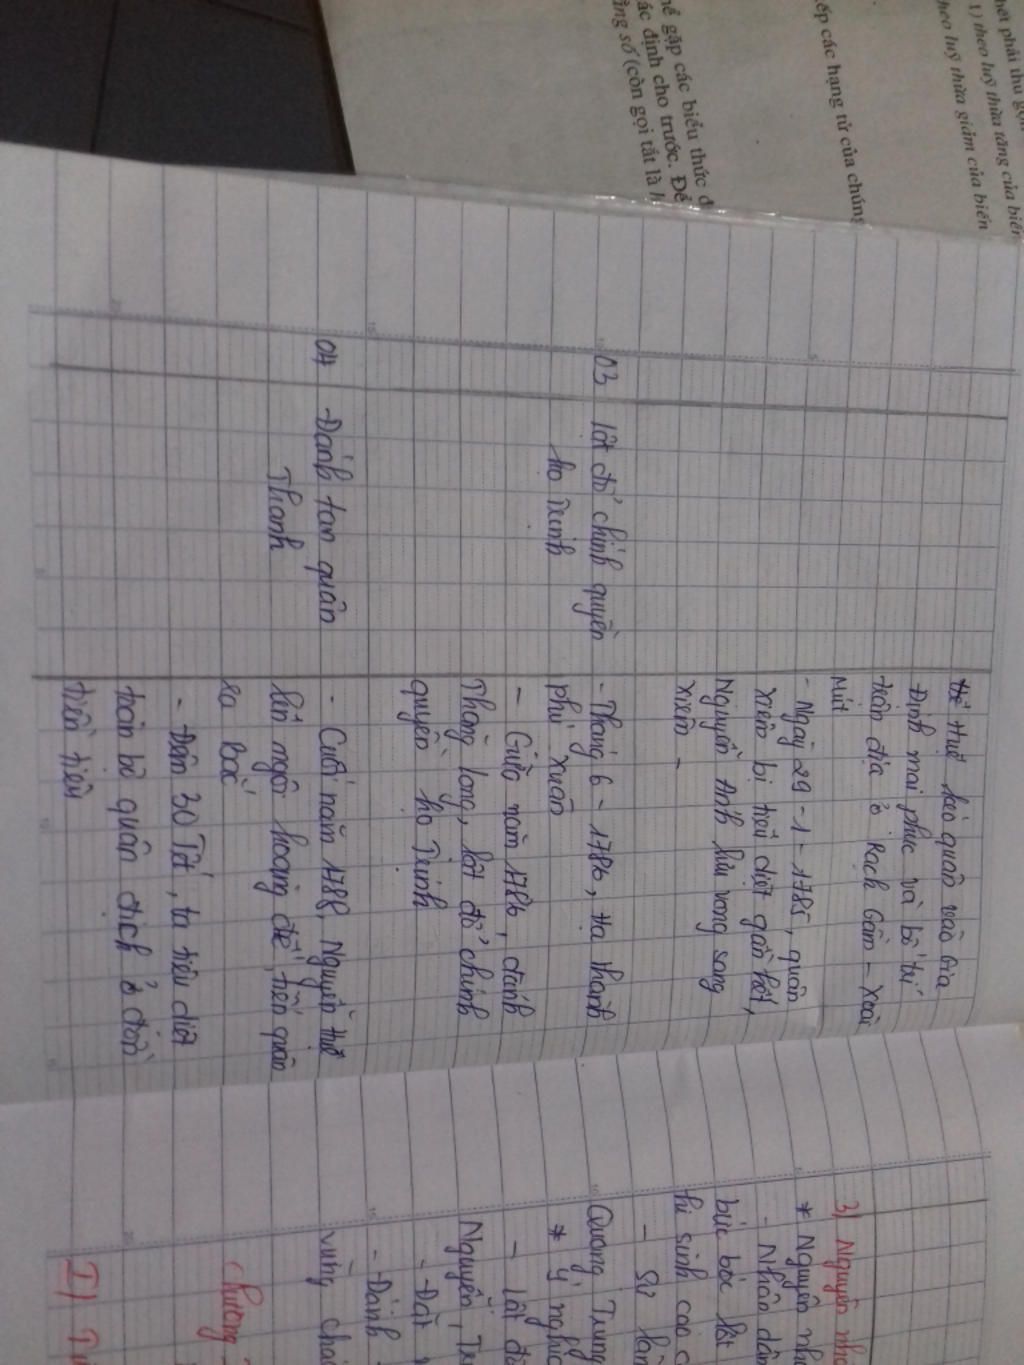 hết phải thu gọn
1) theo luỹ thừa tăng của biến
theo luỹ thừa giảm của biến
ếp các hạng tử của chúng
ể gặp các biểu thức đ
ác định cho trước. Để
ằng số (còn gọi tắt là h
Huệ kéo quân vào Gia
Định mai phục và bố trí
trận địa ở Rạch Gầm - Xoài
Mút
- Ngày 29 - 1 - 1785, quân
xiêm bị tiêu diệt gần hết,
Nguyễn Ánh lưu vong sang
xiêm -
03 lật đổ chính quyền
họ Trịnh
- Tháng 6 - 1786, Hạ thành
phú xuân
- Giữa năm 1786, đánh
Thăng long, lật đổ chính
quyền họ Trịnh
04 Đánh tan quân
Thanh
- Cuối năm 1788, Nguyễn Huệ
lên ngôi hoàng đế, tiến quân
ra Bắc
- Đêm 30 Tết, ta tiêu diệt
toàn bộ quân địch ở đồn
tiền tiêu
3) Nguyên nh
* Nguyên nh
- Nhân dân
bức bóc lột
hi sinh cao c
- Sự lãn
Quang Trung
* Ý nghĩa
- lật đổ
Nguyễn, Tr
- Đặt
- Đánh
vững chắ
Chương
I) T